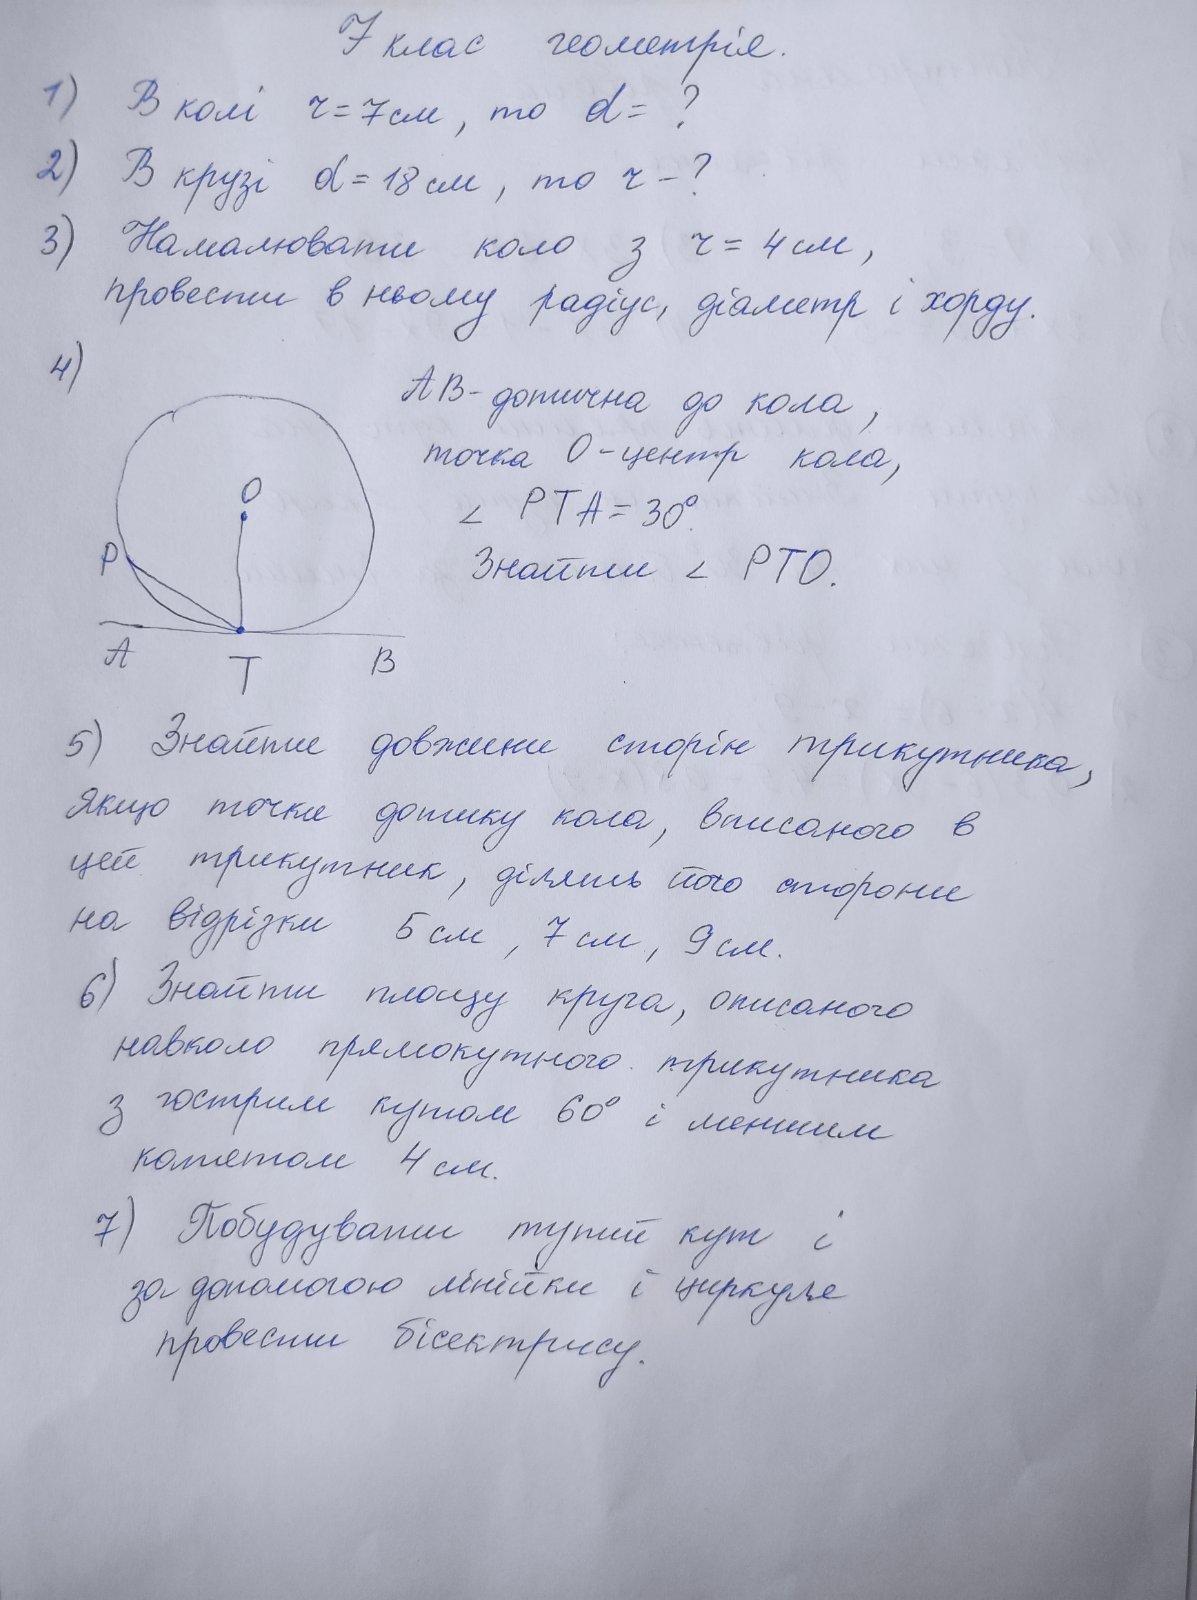 7 клас геометрія.
1) В колі r = 7 см, то d = ?
2) В крузі d = 18 см, то r - ?
3) Намалювати коло з r = 4 см,
провести в ньому радіус, діаметр і хорду.
4)
AB - дотична до кола,
точка O - центр кола,
∠ PTA = 30°.
Знайти ∠ PTO.
O
P
A
T
B
5) Знайти довжини сторін трикутника,
якщо точки дотику кола, вписаного в
цей трикутник, ділять його сторони
на відрізки 5 см, 7 см, 9 см.
6) Знайти площу круга, описаного
навколо прямокутного трикутника
з гострим кутом 60° і меншим
катетом 4 см.
7) Побудувати тупий кут і
за допомогою лінійки і циркуля
провести бісектрису.